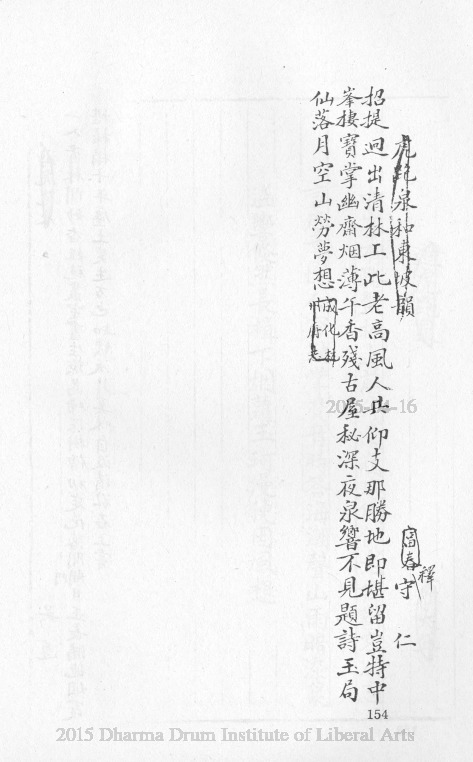 虎跑泉和東坡韻
富春
釋
守仁
招提迥出清林工此老高風人共仰支那勝地即堪留豈特中
峯棲寶掌幽齋烟薄午香殘古屋秘深夜泉響不見題詩玉局
仙落月空山勞夢想
成化杭
州府志
2015-04-16
154
2015 Dharma Drum Institute of Liberal Arts